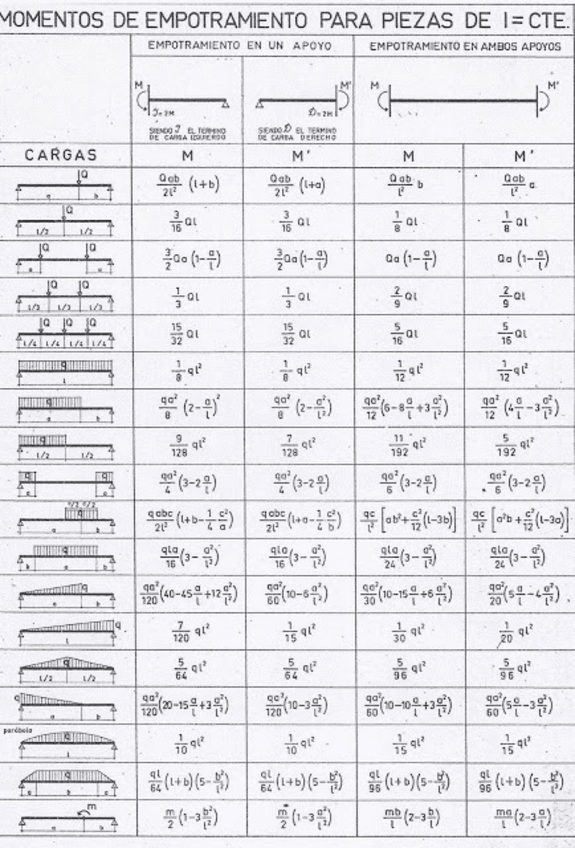 MOMENTOS DE EMPOTRAMIENTO PARA PIEZAS DE I=CTE.
EMPOTRAMIENTO EN UN APOYO EMPOTRAMIENTO EN AMBOS APOYOS
M M' M M'
J=2M D=2M
SIENDO J EL TERMINO DE CARGA IZQUIERDO
SIENDO D EL TERMINO DE CARGA DERECHO
CARGAS M M' M M'
Q a b Qab/2l² (l+b) Qab/2l² (l+a) Qab/l² b Qab/l² a
Q l/2 l/2 3/16 Ql 3/16 Ql 1/8 Ql 1/8 Ql
Q Q a a 3/2 Qa (1-a/l) 3/2 Qa (1-a/l) Qa (1-a/l) Qa (1-a/l)
Q Q l/3 l/3 l/3 1/3 Ql 1/3 Ql 2/9 Ql 2/9 Ql
Q Q Q l/4 l/4 l/4 l/4 15/32 Ql 15/32 Ql 5/16 Ql 5/16 Ql
q l 1/8 ql² 1/8 ql² 1/12 ql² 1/12 ql²
q a b qa²/8 (2-a/l)² qa²/8 (2-a²/l²) qa²/12 (6-8 a/l+3 a²/l²) qa²/12 (4 a/l-3 a²/l²)
q l/2 l/2 9/128 ql² 7/128 ql² 11/192 ql² 5/192 ql²
q q a a qa²/4 (3-2 a/l) qa²/4 (3-2 a/l) qa²/6 (3-2 a/l) qa²/6 (3-2 a/l)
c/2 c/2 q a b qabc/2l² (l+b-1/4 c²/a) qabc/2l² (l+a-1/4 c²/b) qc/l² [ab²+c²/12 (l-3b)] qc/l² [a²b+c²/12 (l-3a)]
q b a b qla/16 (3-a²/l²) qla/16 (3-a²/l²) qla/24 (3-a²/l²) qla/24 (3-a²/l²)
q a b qa²/120 (40-45 a/l+12 a²/l²) qa²/60 (10-6 a²/l²) qa²/30 (10-15 a/l+6 a²/l²) qa²/20 (5 a/l-4 a²/l²)
q l 7/120 ql² 1/15 ql² 1/30 ql² 1/20 ql²
q l/2 l/2 5/64 ql² 5/64 ql² 5/96 ql² 5/96 ql²
q a b qa²/120 (20-15 a/l+3 a²/l²) qc²/120 (10-3 a²/l²) qa²/60 (10-10 a/l+3 a²/l²) qa²/60 (5 a/l-3 a²/l²)
parábola q l 1/10 ql² 1/10 ql² 1/15 ql² 1/15 ql²
q b ql/64 (l+b)(5-b²/l²) ql/64 (l+b)(5-b²/l²) ql/96 (l+b)(5-b²/l²) ql/96 (l+b)(5-b²/l²)
m a b m/2 (1-3 b²/l²) m/2 (1-3 a²/l²) mb/l (2-3 b/l) ma/l (2-3 a/l)